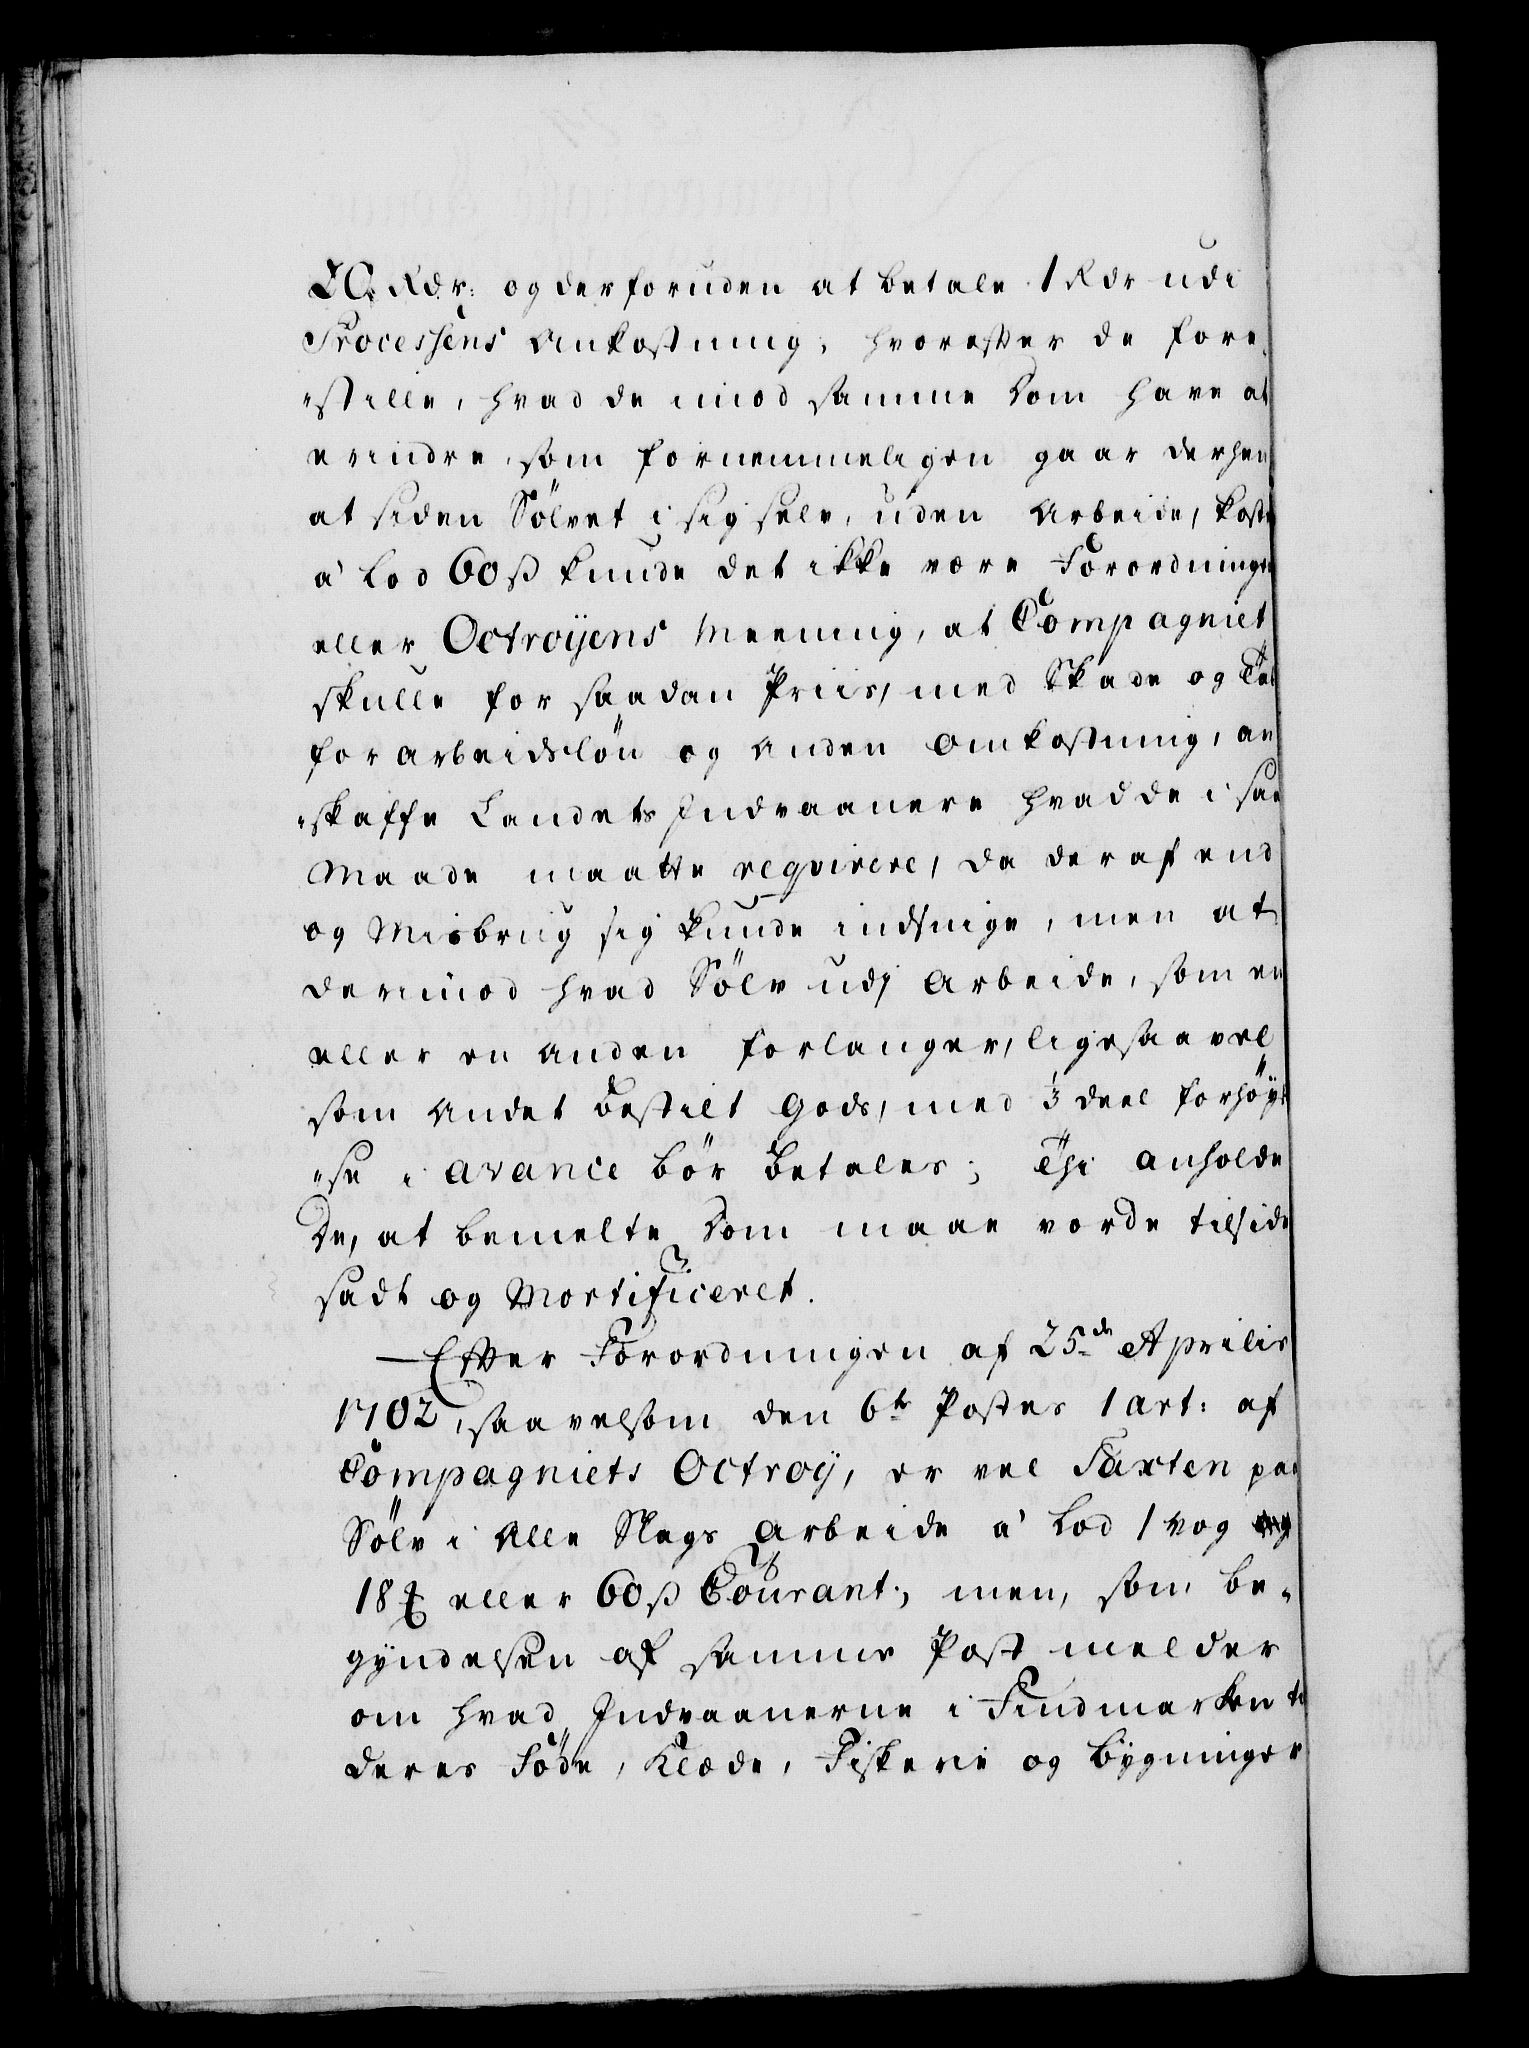 20. Rdr: og derforuden at betale 1 Rdr udi
Processens Omkostning; hvorefter de fore„
„stille, hvad de imod samme Dom have at
erindre, som fornemmeligen gaar derhen
at siden Sölvet i sig selv, uden Arbeide, koste
a' Lod 60 ß kunde det ikke være Forordningen
eller Octroijens Meening, at Compagniet
skulle for saadan Priis, med Skade og Tab
for arbeidslön og anden Omkostning, an
„skaffe Landets Indvaanere hvad de i saa
Maade maatte reqvirere, da deraf end
og Misbrug sig kunde indsnige, men at
derimod hvad Sölv udj Arbeide, som en
eller en anden forlanger, ligesaavel
som andet bestilt Gods, med ⅓ deel forhöyel
„se i avance bör betales; Thi anholde
De, at bemelte Dom maae vorde tilside
sadt og Mortificeret.
Efter Forordningen af 25de Aprilis
1702, saavelsom den 6te Postes 1 art: af
Compagniets Octroij, er vel Taxten paa
Sölv i alle Slags Arbeide a' Lod 1 Vog
18 ℔ eller 60 ß Courant; men, som be„
gyndelsen af samme Post melder
om hvad Indvaanerne i Findmarken til
deres Föde, Klæde, Fiskerie og Bygninger